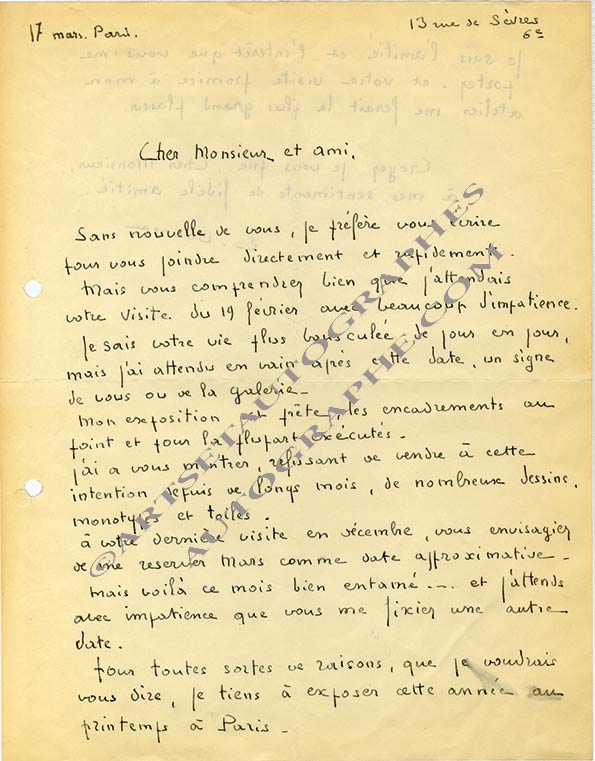 17 mars. Paris.
13 rue de Sèvres
6e
Cher Monsieur et ami.
Sans nouvelle de vous, je préfère vous écrire
pour vous joindre directement et rapidement.
Mais vous comprendrez bien que j'attendais
votre visite. du 19 février avec beaucoup d'impatience.
Je sais votre vie plus bousculée de jour en jour,
mais j'ai attendu en vain après cette date, un signe
de vous ou de la galerie_
Mon exposition est prête, les encadrements au
point et pour la plupart exécutés.
j'ai a vous montrer, refusant de vendre à cette
intention depuis de longs mois, de nombreux dessins,
monotypes et toiles.
à votre dernière visite en décembre, vous envisagiez
de me reserver Mars comme date approximative_
Mais voilà ce mois bien entamé .... et j'attends
avec impatience que vous me fixiez une autre
date.
Pour toutes sortes de raisons, que je voudrais
vous dire, je tiens à exposer cette année au
printemps à Paris_
©ARTSETAUTOGRAPHES
AUTOGRAPHE.COM